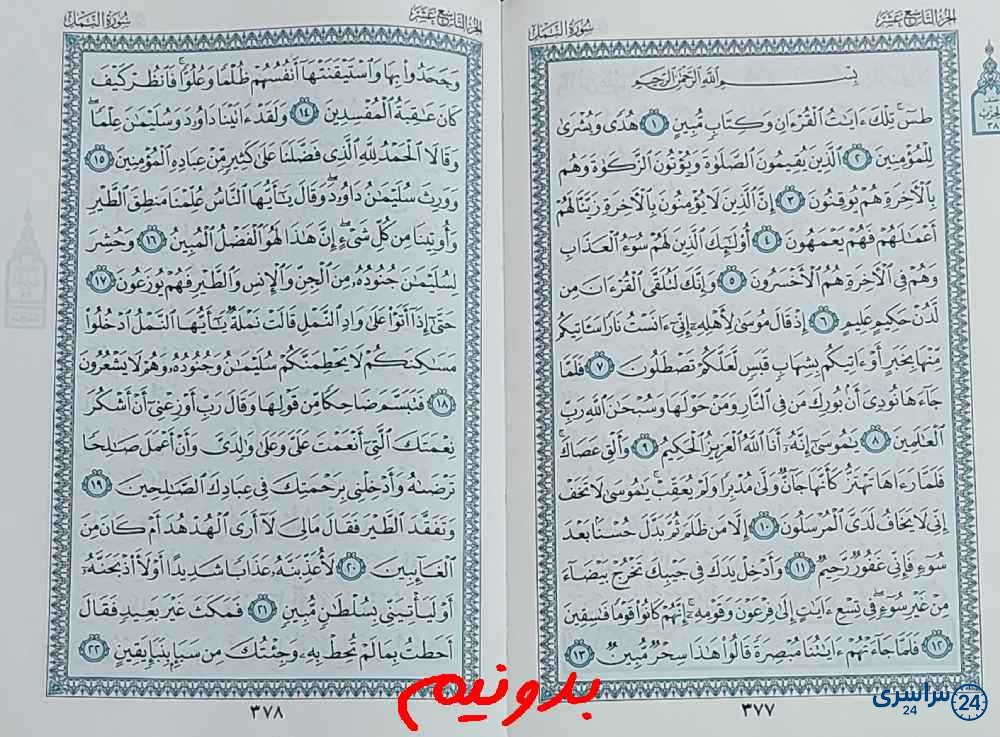 الجزء التاسع عشر
سورة النمل
بِسْمِ ٱللَّهِ ٱلرَّحْمَٰنِ ٱلرَّحِيمِ
طسٓ ۚ تِلْكَ ءَايَٰتُ ٱلْقُرْءَانِ وَكِتَابٍ مُّبِينٍ ١ هُدًى وَبُشْرَىٰ
لِلْمُؤْمِنِينَ ٢ ٱلَّذِينَ يُقِيمُونَ ٱلصَّلَوٰةَ وَيُؤْتُونَ ٱلزَّكَوٰةَ وَهُم
بِٱلْءَاخِرَةِ هُمْ يُوقِنُونَ ٣ إِنَّ ٱلَّذِينَ لَا يُؤْمِنُونَ بِٱلْءَاخِرَةِ زَيَّنَّا لَهُمْ
أَعْمَٰلَهُمْ فَهُمْ يَعْمَهُونَ ٤ أُو۟لَٰٓئِكَ ٱلَّذِينَ لَهُمْ سُوٓءُ ٱلْعَذَابِ
وَهُمْ فِى ٱلْءَاخِرَةِ هُمُ ٱلْأَخْسَرُونَ ٥ وَإِنَّكَ لَتُلَقَّى ٱلْقُرْءَانَ مِن
لَّدُنْ حَكِيمٍ عَلِيمٍ ٦ إِذْ قَالَ مُوسَىٰ لِأَهْلِهِۦٓ إِنِّىٓ ءَانَسْتُ نَارًا سَـَٔاتِيكُم
مِّنْهَا بِخَبَرٍ أَوْ ءَاتِيكُم بِشِهَابٍ قَبَسٍ لَّعَلَّكُمْ تَصْطَلُونَ ٧ فَلَمَّا
جَآءَهَا نُودِىَ أَنۢ بُورِكَ مَن فِى ٱلنَّارِ وَمَنْ حَوْلَهَا وَسُبْحَٰنَ ٱللَّهِ رَبِّ
ٱلْعَٰلَمِينَ ٨ يَٰمُوسَىٰٓ إِنَّهُۥٓ أَنَا ٱللَّهُ ٱلْعَزِيزُ ٱلْحَكِيمُ ٩ وَأَلْقِ عَصَاكَ ۚ
فَلَمَّا رَءَاهَا تَهْتَزُّ كَأَنَّهَا جَآنٌّ وَلَّىٰ مُدْبِرًا وَلَمْ يُعَقِّبْ ۚ يَٰمُوسَىٰ لَا تَخَفْ
إِنِّى لَا يَخَافُ لَدَىَّ ٱلْمُرْسَلُونَ ١٠ إِلَّا مَن ظَلَمَ ثُمَّ بَدَّلَ حُسْنًۢا بَعْدَ
سُوٓءٍ فَإِنِّى غَفُورٌ رَّحِيمٌ ١١ وَأَدْخِلْ يَدَكَ فِى جَيْبِكَ تَخْرُجْ بَيْضَآءَ
مِنْ غَيْرِ سُوٓءٍ ۖ فِى تِسْعِ ءَايَٰتٍ إِلَىٰ فِرْعَوْنَ وَقَوْمِهِۦٓ ۚ إِنَّهُمْ كَانُوا۟ قَوْمًا فَٰسِقِينَ
١٢ فَلَمَّا جَآءَتْهُمْ ءَايَٰتُنَا مُبْصِرَةً قَالُوا۟ هَٰذَا سِحْرٌ مُّبِينٌ ١٣
٣٧٧
الجزء التاسع عشر
سورة النمل
وَجَحَدُوا۟ بِهَا وَٱسْتَيْقَنَتْهَآ أَنفُسُهُمْ ظُلْمًا وَعُلُوًّا ۚ فَٱنظُرْ كَيْفَ
كَانَ عَٰقِبَةُ ٱلْمُفْسِدِينَ ١٤ وَلَقَدْ ءَاتَيْنَا دَاوُۥدَ وَسُلَيْمَٰنَ عِلْمًا ۖ
وَقَالَا ٱلْحَمْدُ لِلَّهِ ٱلَّذِى فَضَّلَنَا عَلَىٰ كَثِيرٍ مِّنْ عِبَادِهِ ٱلْمُؤْمِنِينَ ١٥
وَوَرِثَ سُلَيْمَٰنُ دَاوُۥدَ ۖ وَقَالَ يَٰٓأَيُّهَا ٱلنَّاسُ عُلِّمْنَا مَنطِقَ ٱلطَّيْرِ
وَأُوتِينَا مِن كُلِّ شَىْءٍ ۖ إِنَّ هَٰذَا لَهُوَ ٱلْفَضْلُ ٱلْمُبِينُ ١٦ وَحُشِرَ
لِسُلَيْمَٰنَ جُنُودُهُۥ مِنَ ٱلْجِنِّ وَٱلْإِنسِ وَٱلطَّيْرِ فَهُمْ يُوزَعُونَ ١٧
حَتَّىٰٓ إِذَآ أَتَوْا۟ عَلَىٰ وَادِ ٱلنَّمْلِ قَالَتْ نَمْلَةٌ يَٰٓأَيُّهَا ٱلنَّمْلُ ٱدْخُلُوا۟
مَسَٰكِنَكُمْ لَا يَحْطِمَنَّكُمْ سُلَيْمَٰنُ وَجُنُودُهُۥ وَهُمْ لَا يَشْعُرُونَ
١٨ فَتَبَسَّمَ ضَاحِكًا مِّن قَوْلِهَا وَقَالَ رَبِّ أَوْزِعْنِىٓ أَنْ أَشْكُرَ
نِعْمَتَكَ ٱلَّتِىٓ أَنْعَمْتَ عَلَىَّ وَعَلَىٰ وَٰلِدَىَّ وَأَنْ أَعْمَلَ صَٰلِحًا
تَرْضَىٰهُ وَأَدْخِلْنِى بِرَحْمَتِكَ فِى عِبَادِكَ ٱلصَّٰلِحِينَ ١٩
وَتَفَقَّدَ ٱلطَّيْرَ فَقَالَ مَالِىَ لَآ أَرَى ٱلْهُدْهُدَ أَمْ كَانَ مِنَ
ٱلْغَآئِبِينَ ٢٠ لَأُعَذِّبَنَّهُۥ عَذَابًا شَدِيدًا أَوْ لَأَا۟ذْبَحَنَّهُۥٓ
أَوْ لَيَأْتِيَنِّى بِسُلْطَٰنٍ مُّبِينٍ ٢١ فَمَكَثَ غَيْرَ بَعِيدٍ فَقَالَ
أَحَطتُ بِمَا لَمْ تُحِطْ بِهِۦ وَجِئْتُكَ مِن سَبَإٍۭ بِنَبَإٍ يَقِينٍ ٢٢
٣٧٨
بدونیم
سراسری
24
24